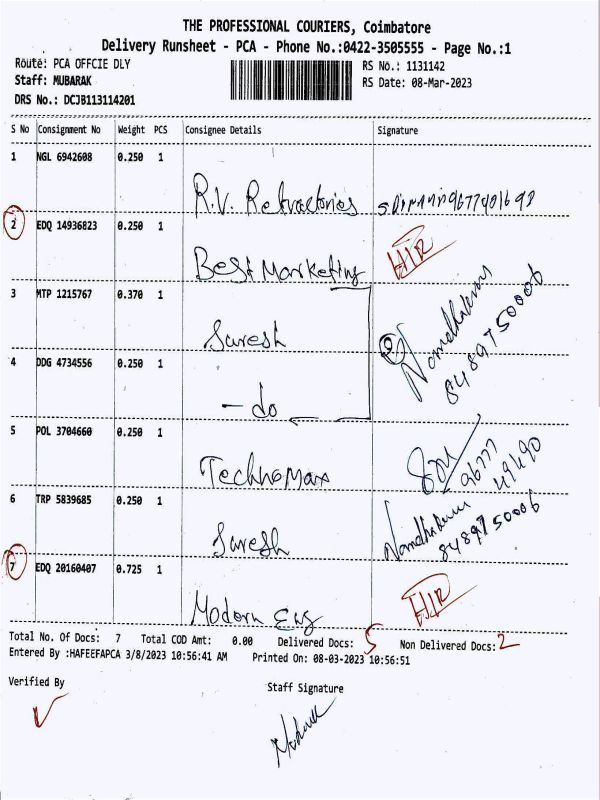 THE PROFESSIONAL COURIERS, Coimbatore
Delivery Runsheet - PCA - Phone No.:0422-3505555 - Page No.:1
Route: PCA OFFCIE DLY
RS No.: 1131142
Staff: MUBARAK
RS Date: 08-Mar-2023
DRS No.: DCJB113114201
S No Consignment No Weight PCS Consignee Details Signature
1 NGL 6942608 0.250 1
R.V. Refractories
2 EDQ 14936823 0.250 1
Best Marketing
3 MTP 1215767 0.370 1
Suresh
Nandhakumar
84897 50006
4 DDG 4734556 0.250 1
- do
5 POL 3704660 0.250 1
TechnoMax
96777
49490
6 TRP 5839685 0.250 1
Suresh
84897 50006
7 EDQ 20160407 0.725 1
Modern Eng
Total No. Of Docs: 7 Total COD Amt: 0.00 Delivered Docs: 5 Non Delivered Docs: 2
Entered By :HAFEEFAPCA 3/8/2023 10:56:41 AM Printed On: 08-03-2023 10:56:51
Verified By
Staff Signature